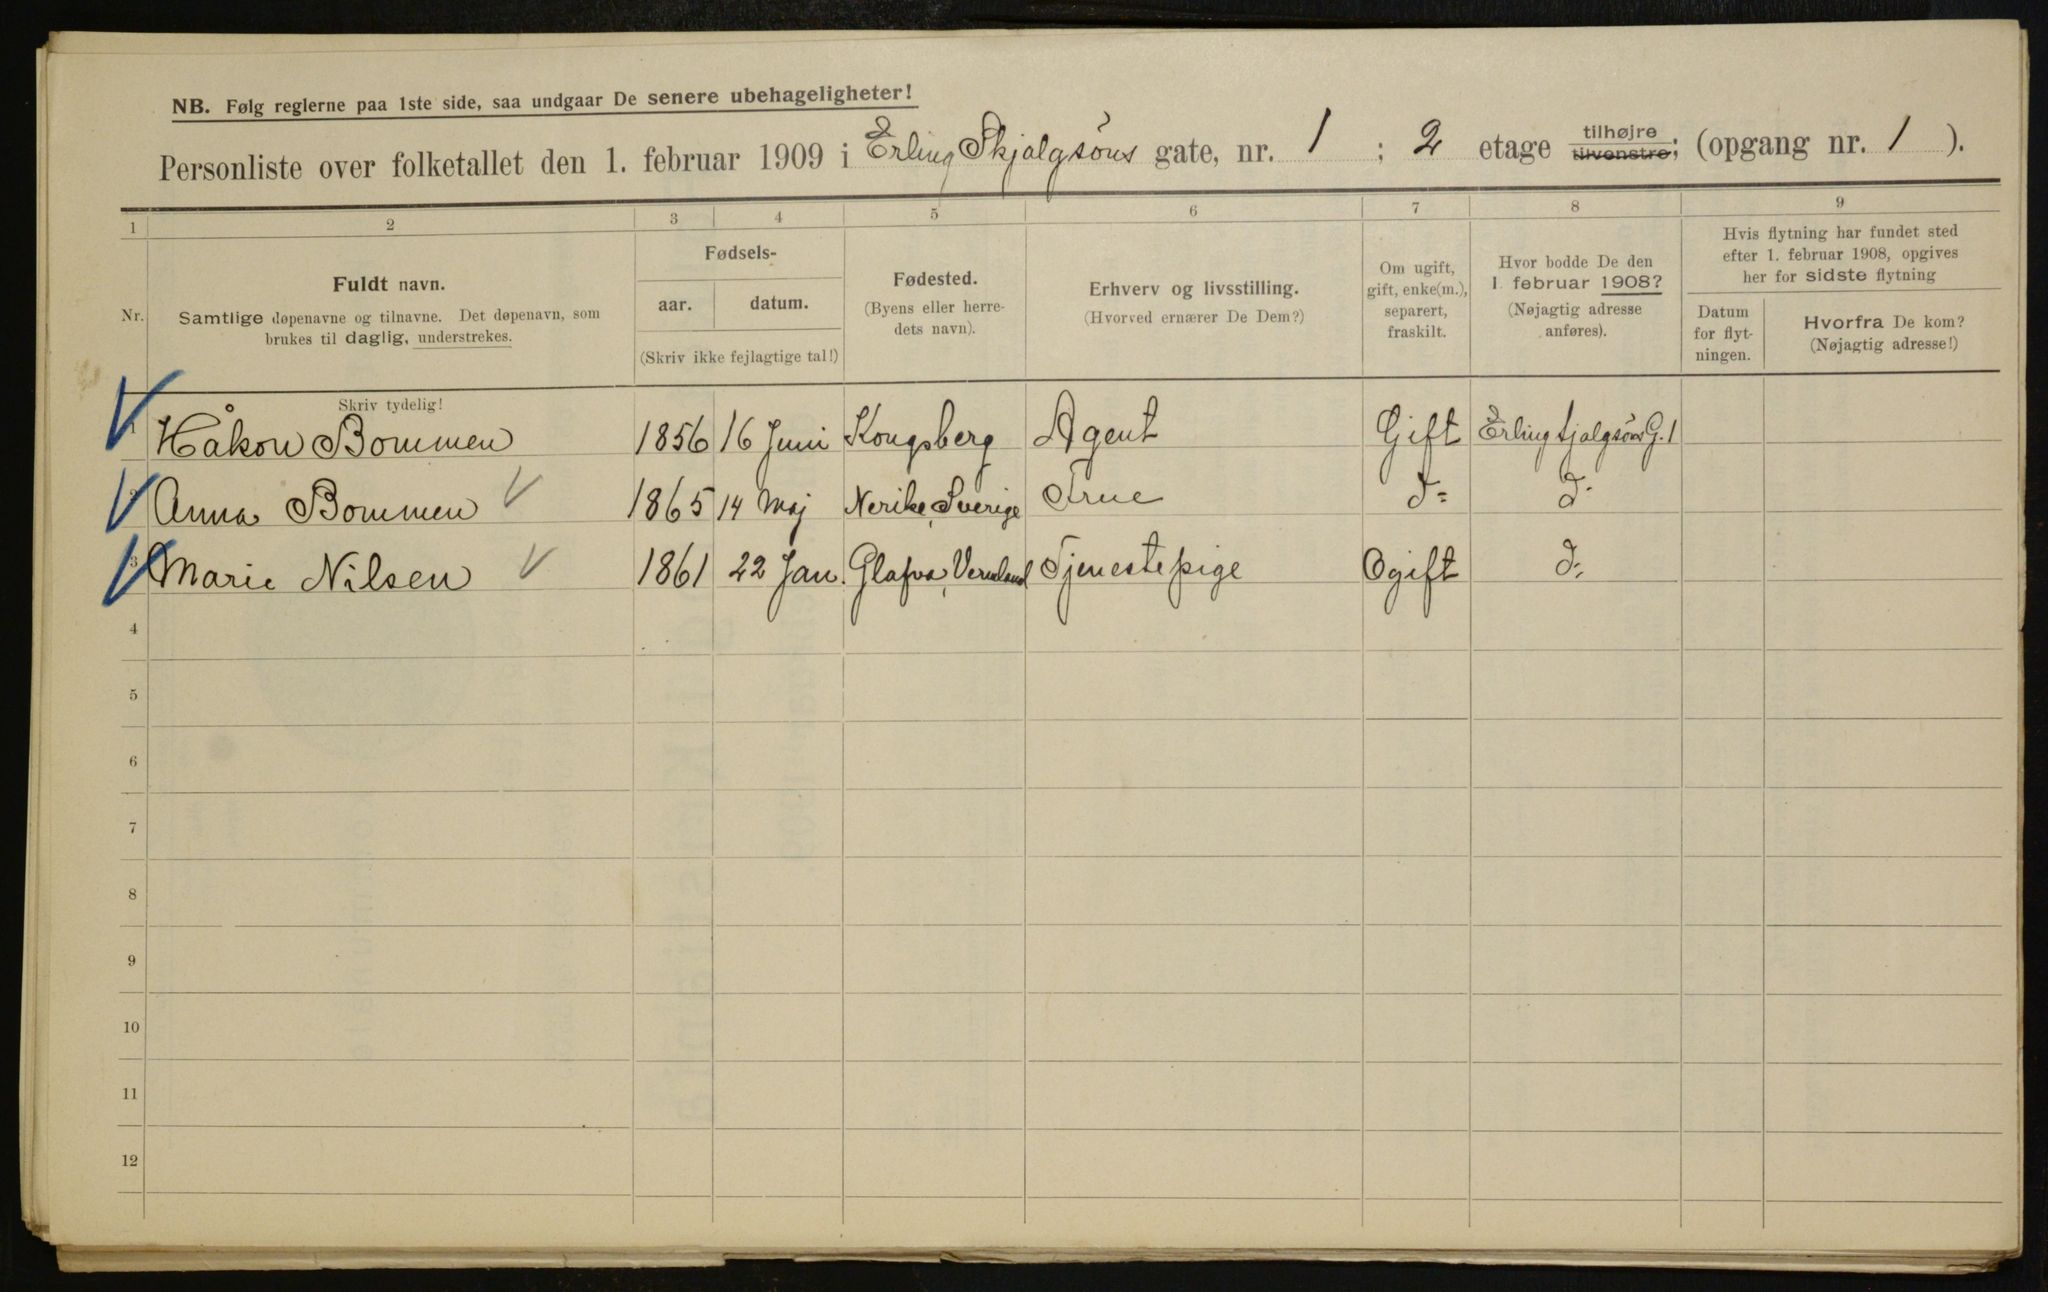 NB. Følg reglerne paa 1ste side, saa undgaar De senere ubehageligheter!
Personliste over folketallet den 1. februar 1909 i Erling Skjalgsöns gate, nr. 1 ; 2 etage tilhøjre tilvenstre; (opgang nr. 1 ).
1 2 3 4 5 6 7 8 9
Nr.
Fuldt navn.
Samtlige døpenavne og tilnavne. Det døpenavn, som
brukes til daglig, understrekes.
Fødsels-
aar. datum.
(Skriv ikke fejlagtige tal!)
Fødested.
(Byens eller herre-
dets navn).
Erhverv og livsstilling.
(Hvorved ernærer De Dem?)
Om ugift,
gift, enke(m.),
separert,
fraskilt.
Hvor bodde De den
1. februar 1908?
(Nøjagtig adresse
anføres).
Hvis flytning har fundet sted
efter 1. februar 1908, opgives
her for sidste flytning
Datum
for flyt-
ningen.
Hvorfra De kom?
(Nøjagtig adresse!)
Skriv tydelig!
1 Håkon Bommen 1856 16 Juni Kongsberg Agent Gift Erling Sjalgsöns G. 1
2 Anna Bommen 1865 14 Maj Nerike, Sverige Frue d= d-
3 Marie Nilsen 1861 22 Jan. Glafva, Vermland Tjenestepige Ogift d:
4
5
6
7
8
9
10
11
12